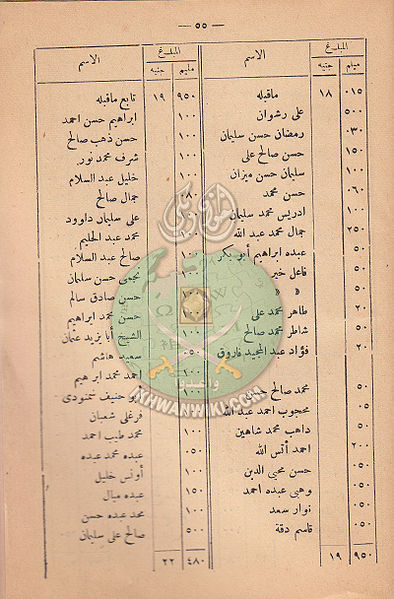 — ٥٥ —
الاسم المبلغ
جنيه مليم
٠١٥ ١٨ ماقبله
٥٠٠ على رشوان
٠٣٠ رمضان حسن سليمان
١٥٠ حسن صالح على
١٠٠ سليمان حسن ميزان
٠٦٠ حسن محمد
١٠٠ ادريس محمد سليمان
٢٥٠ جمال محمد عبد الله
٥٠ عبده ابراهيم أبو بكر
٥٠ فاعل خير
٥٠ » »
٢٠ طاهر محمد على
٥٠ شاطر محمد صالح
٢٠ فؤاد عبد المجيد فاروق
٥٠ محمد صالح
٠٥ محجوب احمد عبد الله
٥٠ داهب محمد شاهين
٢٠٠ احمد أنس الله
٥٠ حسن محي الدين
٠٥٠ وهبى عبده احمد
٥٠ نوار سعد
٠٥٠ قاسم دقة
٩٥٠ ١٩
الاسم المبلغ
جنيه مليم
٩٥٠ ١٩ تابع ماقبله
١٠٠ ابراهيم حسن احمد
١٠٠ حسن ذهب صالح
١٠٠ شرف محمد نور
١٠٠ خليل عبد السلام
جمال صالح
١٠٠ على سليمان داوود
محمد عبد الحليم
صالح عبد السلام
نجمى حسن سلمان
حسن صادق سالم
حسن محمد ابراهيم
١٠٠ الشيخ أبا يزيد عثمان
٠٥٠ سعيد هاشم
١٠٠ احمد محمد ابرهيم
حنيف سمنودى
١٠٠ فرغلى شعبان
١٠٠ محمد طيب احمد
٠٥٠ عبده محمد عبده
١٠٠ أونس خليل
١٥٠ عبده ميال
١٠٠ محمد عبده حسن
٥٠٠ صالح على سليمان
٤٨٠ ٢٢
إخوان ويكي
وأعدوا
IKHWANWIKI.COM